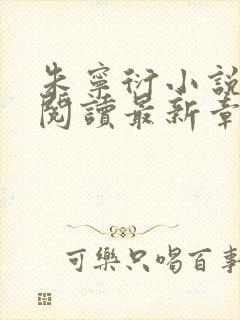 朱寧衍小說
閱讀最新章
可樂只喝百事